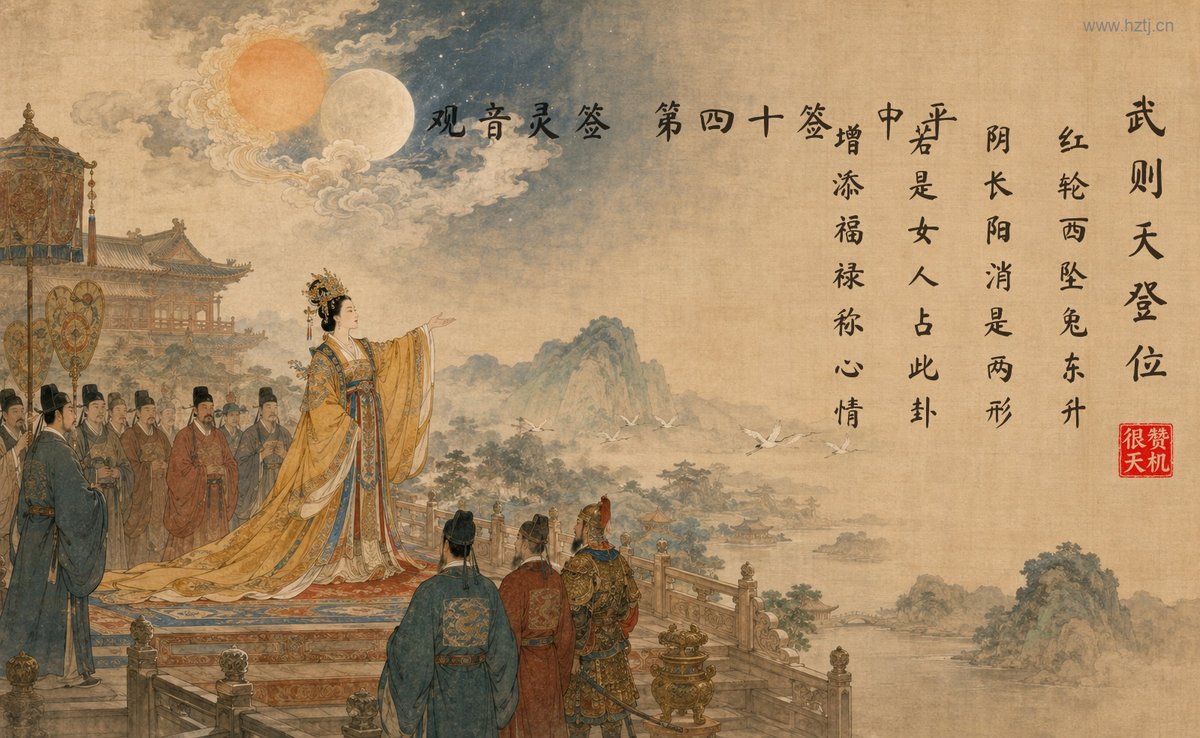 www.hztj.cn
观音灵签 第四十签 中平
武则天登位
红轮西坠兔东升
阴长阳消是两形
若是女人占此卦
增添福禄称心情
赞机
很天